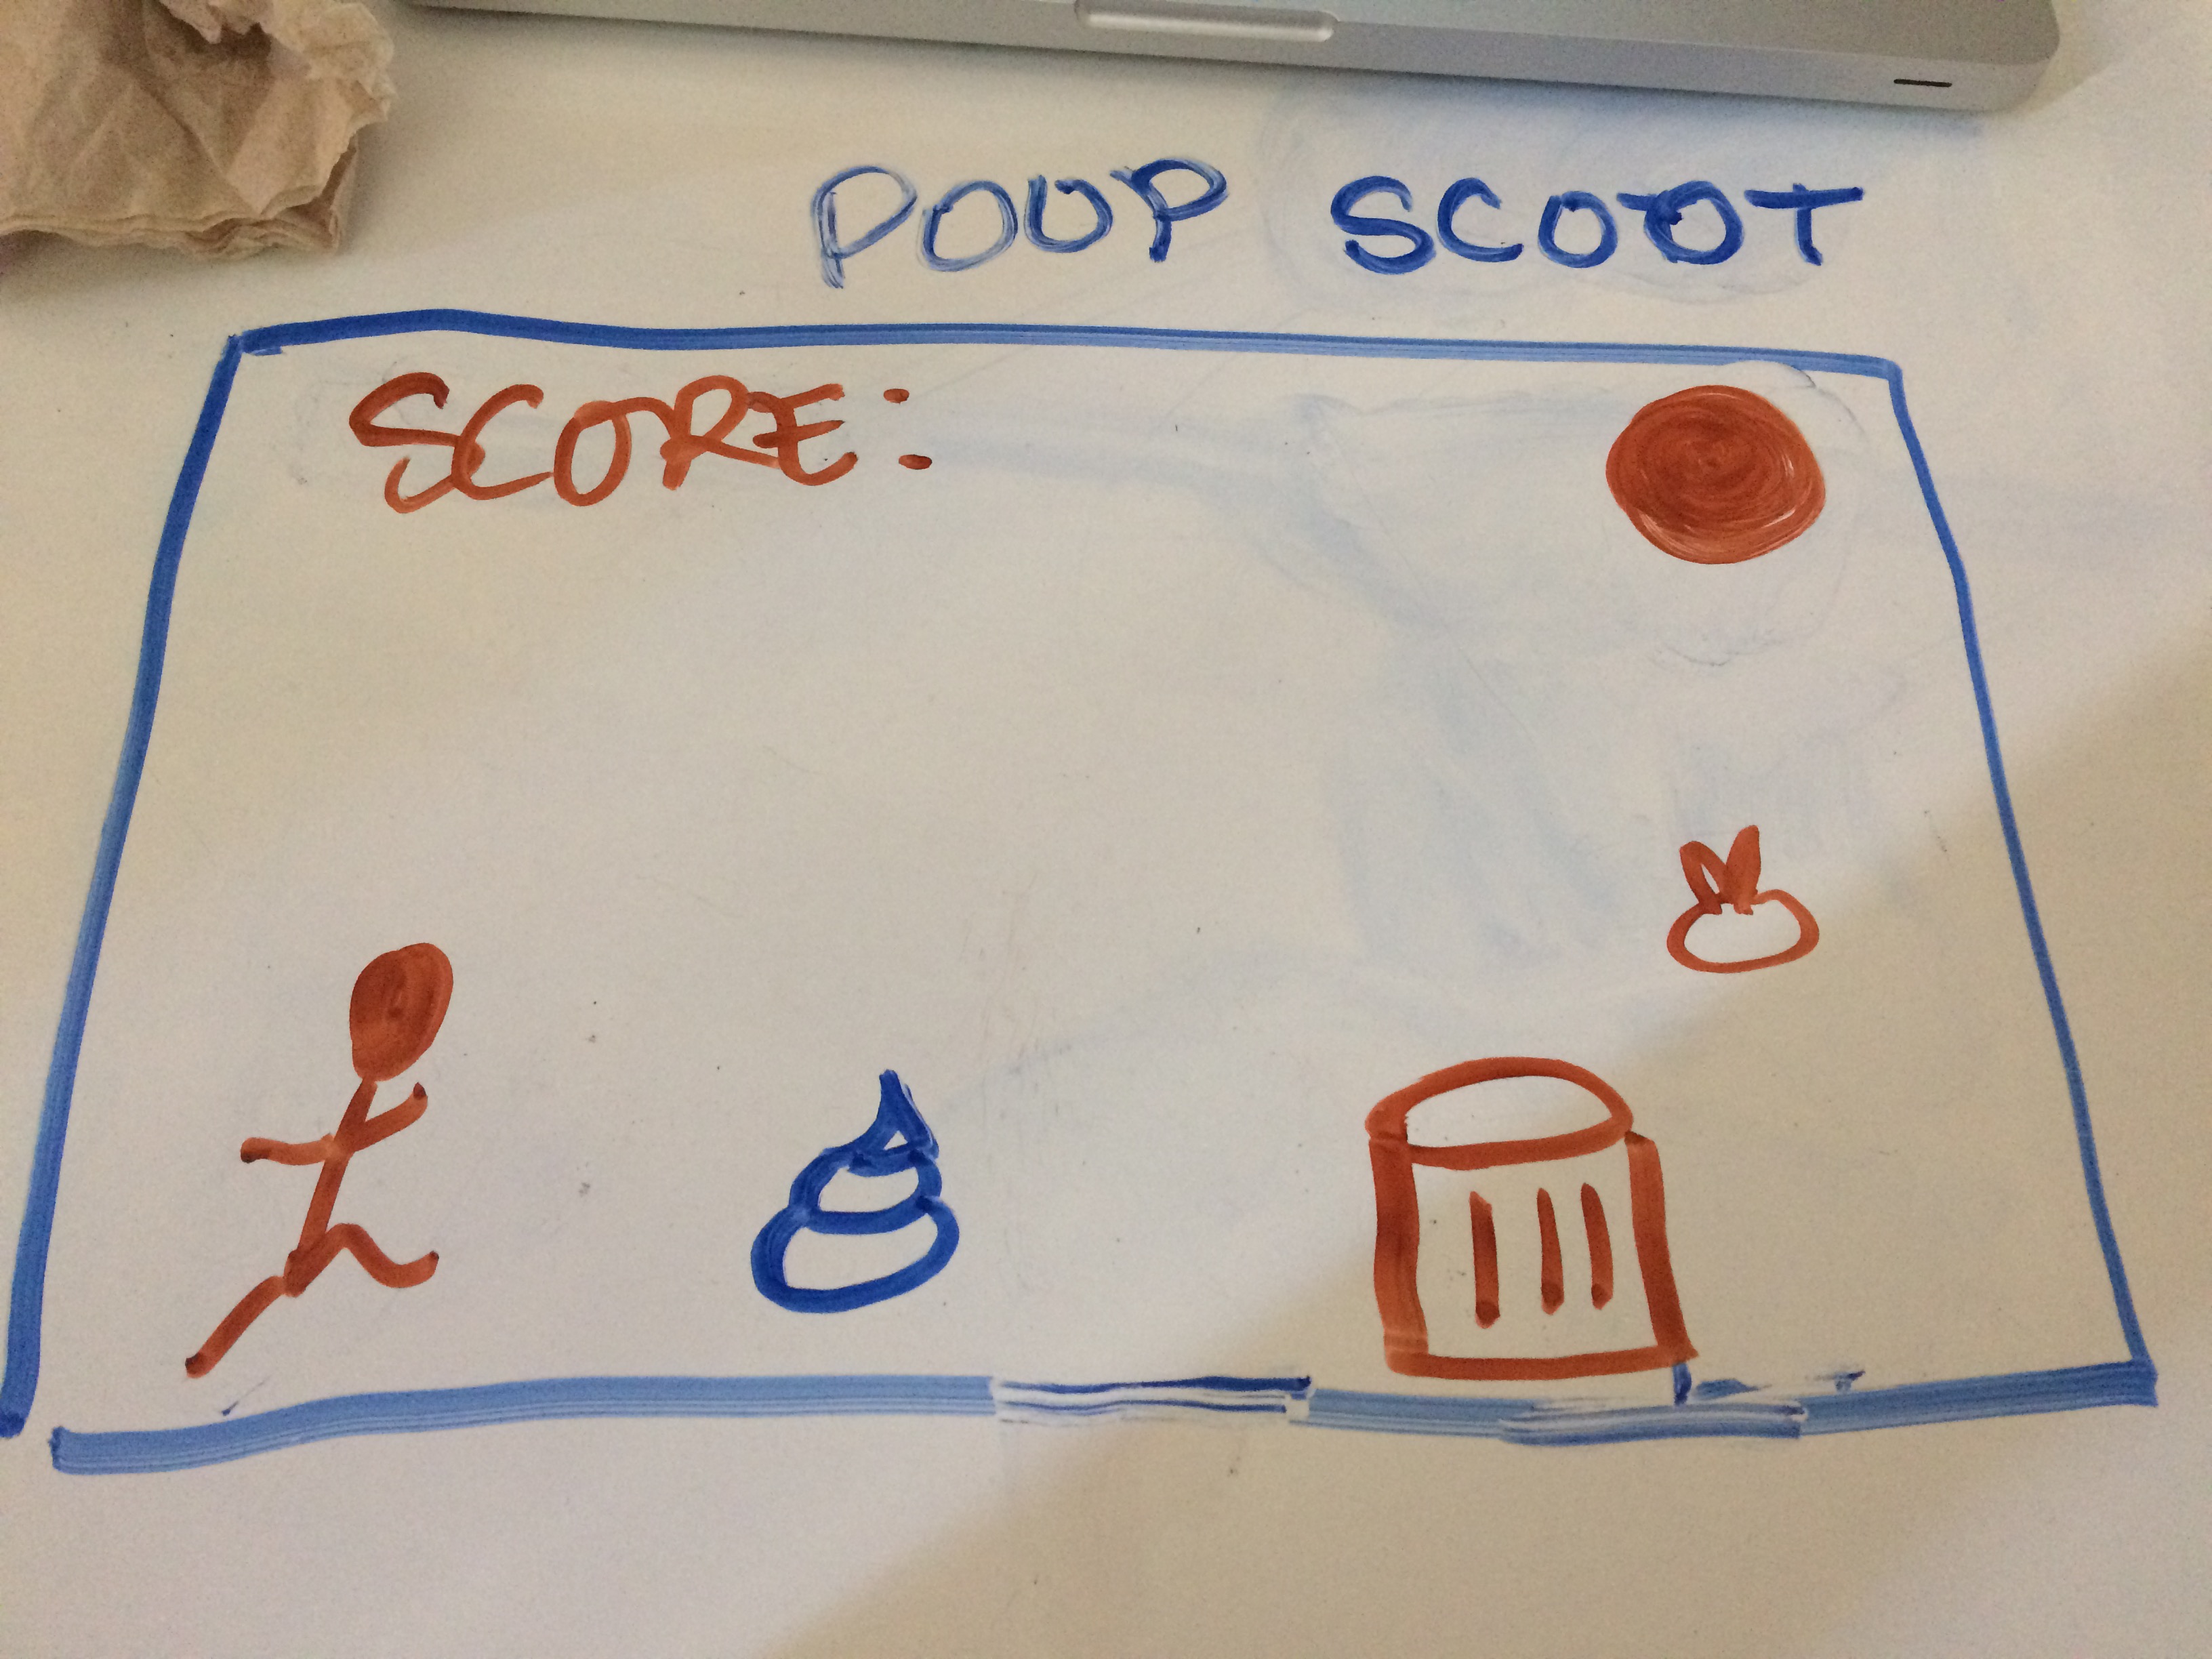 POOP SCOOT
SCORE: